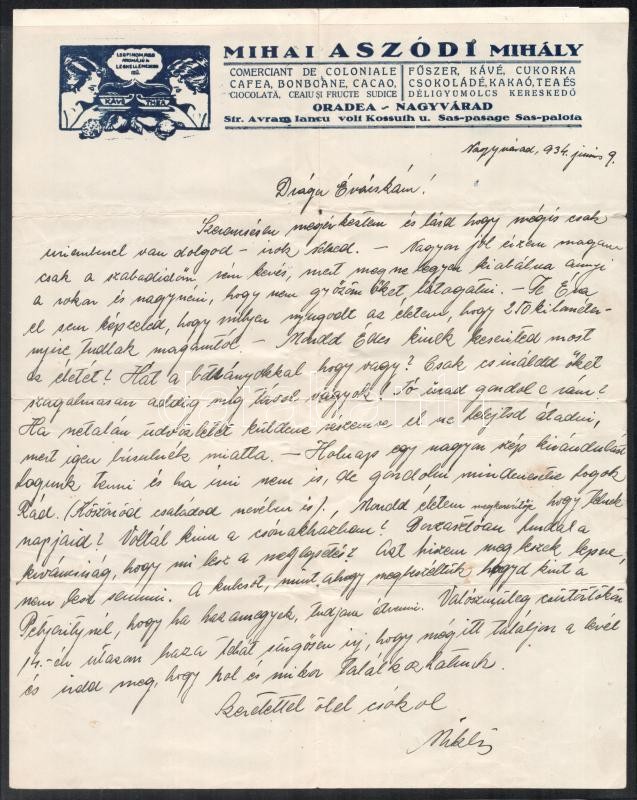 MIHAI ASZÓDI MIHÁLY
COMERCIANT DE COLONIALE
CAFEA, BONBOANE, CACAO,
CIOCOLATĂ, CEAIU ȘI FRUCTE SUDICE
FŰSZER, KÁVÉ, CUKORKA
CSOKOLÁDÉ, KAKAÓ, TEA ÉS
DÉLIGYÜMÖLCS KERESKEDŐ
ORADEA - NAGYVÁRAD
Str. Avram Iancu volt Kossuth u. Sas-pasage Sas-palota
LEGFINOMABB
KÁVÉ THEA
Nagyvárad, 934. június 9.
Drága Évácskám!
Szerencsésen megérkeztem és lásd hogy mégis csak
van dolgod - írok Neked. - Nagyon jól érzem magam
csak a szabadidőm nem kevés, mert megne legyen kiabálva annyi
a rokon és nagynéni, hogy nem győzöm őket látogatni. - Te Éva
el sem képzeled, hogy milyen nyugodt az életem, hogy 250 kilométer-
nyire tudlak magamtól. - Mondd Édes kinek keseríted most
az életét? Hát a bálványokkal hogy vagy? Csak csináldd őket
szagalmasan addig míg távol vagyok! Jó úrad gondol e rám?
Ha netalán üdvözletét küldene részemre el ne felejtsd átadni,
mert igen búsulnék miatta. - Holnap egy nagyon szép kirándulást
fogunk tenni és ha írni nem is, de gondolni mindenesetre fogok
Rád. (Köszönöd családod nevében is). Mondd életem hogy telnek
napjaid? Voltál kinn a csónakházban? Borzasztóan furdal a
kíváncsiság, hogy mi lesz a meglepetés? Azt hiszem meg leszek lepve,
nem lesz semmi. A kulcsot, mint ahogy megbeszéltük hagyd kint a
hogy ha hazamegyek, tudjam átvenni. Valószínűleg csütörtökön
14.-én utazom haza tehát sürgősen írj, hogy még itt találjon a levél
és írdd meg, hogy hol és mikor találkozhatunk
Szeretettel ölel csókol
Miklós